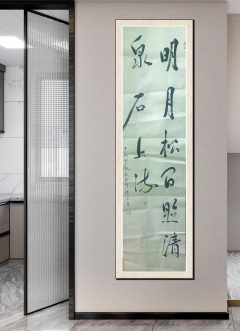 明月松間照清
泉石上流